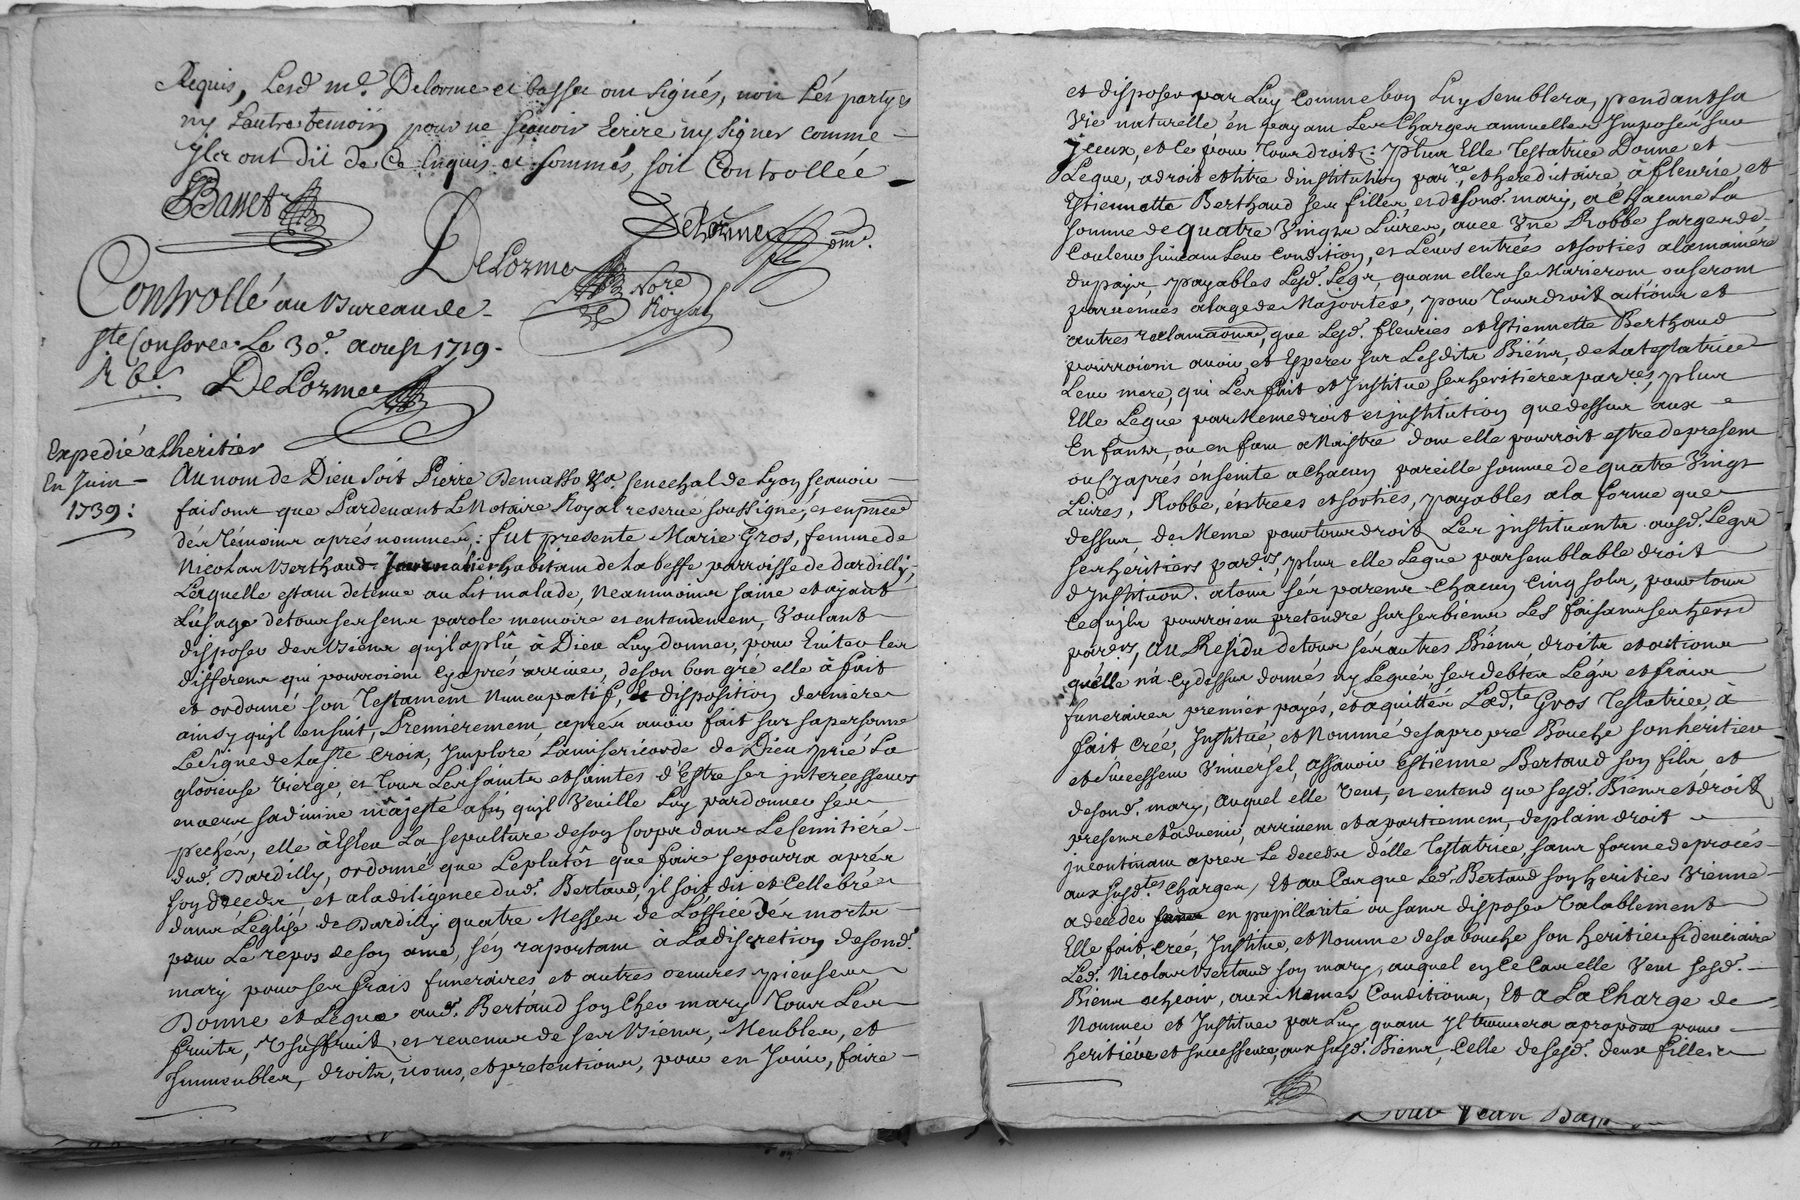 Requis, Lesd mrs. Delorme et basset ont signés, non Lés partyes
ny Lautre temoin pour ne sçavoir Ecrire ny signer comme
Ils ont dit de Ce Enquis et sommés, soit Controllée
Basset
DeLorme
DeLorme
Nore
Royal
Controllé au Bureau de
ste Consorce Le 30e. aoust 1719.
DeLorme
Expedié a lheritier
En Juin
1739:
Au nom de Dieu soit Pierre Demasso senechal de Lyon scavoir
faisons que Pardevant Le Notaire Royal reservé soussigné, et en pnce
dés témoins aprés nommés: fut presente Marie Gros, femme de
Nicolas Berthaud Journalier habitant de La besse parroisse de Dardilly,
Laquelle estant detenue au Lit malade, Neanmoins saine et ayant
L'usage de tous ses sens parole memoire et entendement, Voulant
disposer des Biens qu'il a plû à Dieu Luy donner, pour Eviter les
differens qui pourroient cy aprés arriver, de son bon gré elle à fait
et ordonné son Testament Nuncupatif, et disposition derniere
ainsy quil ensuit, Premierement, aprés avoir fait sur sa personne
Le signe de La ste Croix, Imploré La misericorde de Dieu prié La
glorieuse Vierge, et tous Les saints et saintes d'Estre ses intercesseurs
envers sa divine majesté afin quil Veuille Luy pardonner sés
pechés, elle à Esleu La sepulture de son Corps dans Le Semitiére
dud. Dardilly, ordonne que Le plutôt que faire se pourra aprés
son decéds, et a la diligence dud. Bertaud, il soit dit et Cellebré
dans L'église de Dardilly quatre Messes de L'office dés morts
pour Le repos de son ame, s'en raportant à La discretion de sond.
mary pour ses frais funeraires et autres oeuvres pieuses
Donne et Legue aud. Bertaud son Cher mary Tous Les
fruits, Usuffruit, et revenus de ses Biens, Meubles, et
Immeubles, droits, noms, et pretentions, pour en Jouir, faire
et disposer par Luy comme bon Luy semblera, pendant sa
Vie naturelle en payant Les Charges annuelles Imposés sur
Iceux, et ce pour tour droit: plus Elle Testatrice Donne et
Legue, a droit et titre d'institution parre, et hereditaire, à fleurie, et
Estiennette Berthaud ses filles et de sond. mary, a Chacune La
somme de quatre Vingts Livres, avec Une Robbe sarge de
Couleur suivant Leur Condition, et Leurs entrées et sorties a la maniere
du païs, payables Lesd. Legs, quant elles se Marieront, ou seront
parvenues a lage de Majorités, pour Tour droit actions et
autres reclamations, que Lesd. fleuries et Estiennette Berthaud
pourroient avoir, et Esperer sur Lesdits Biens, de La testatrice
Leur mere, qui Les fait et Institue ses heritieres parres, plus
Elle Legue par Meme droit et institution que dessus aux
Enfans, ou enfant a Naistre dont elle pourroit estre de present
ou cy aprés enseinte a chacun pareille somme de quatre Vingt
Livres, Robbe, éntrees et sorties, payables a la forme que
dessus de Meme pour tour droit, Les instituants ausd. Legs
ses heritiers parers, plus elle Legue par semblable droit
d'Institution. a tous sés parens Chacun Cinq sols, pour tout
Ce quils pourroient pretendre sur ses biens Les faisant ses hers
parers, Au Residu de tous sés autres Biens, droits et actions
quélle n'a cy dessus donnés ny Legués ses debtes Légs et frais
funeraires premier payés, et aquittés Lad.te Gros Testatrice, à
fait Créé, Institué, et Nommé de sa propre Bouche son heritier
et successeur Universel, assavoir Estienne Bertaud son fils et
de sond. mary, auquel elle Veut, et entend que sesd. Biens et droits
presens et advenir, arrivent et apartiennent, de plain droit
incontinant apres Le deceds d'elle Testatrice, sans forme de procés
aux susd.tes Charges, Et au Cas que Led. Bertaud son heritier Vienne
a deceder en pupillarité ou sans disposer Valablement
Elle fait, créé, Institue, et Nomme de sa bouche son heritier fideuciaire
Led. Nicolas Bertaud son mary, auquel en ce Cas elle Veut sesd.
Biens echeoir, aux Memes Conditions, Et a La Charge de
Nommer et Instituer par Luy quant Il trouvera a propos pour
heritiére et successeur, aux susd. Biens, Celle de sesd. deux filles